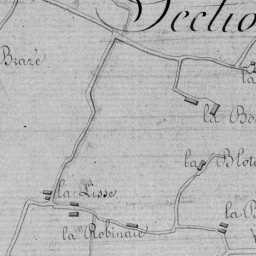 Sectio
Braré
la
la Bo
la Blot
la Lisse
la B
la Robinaie